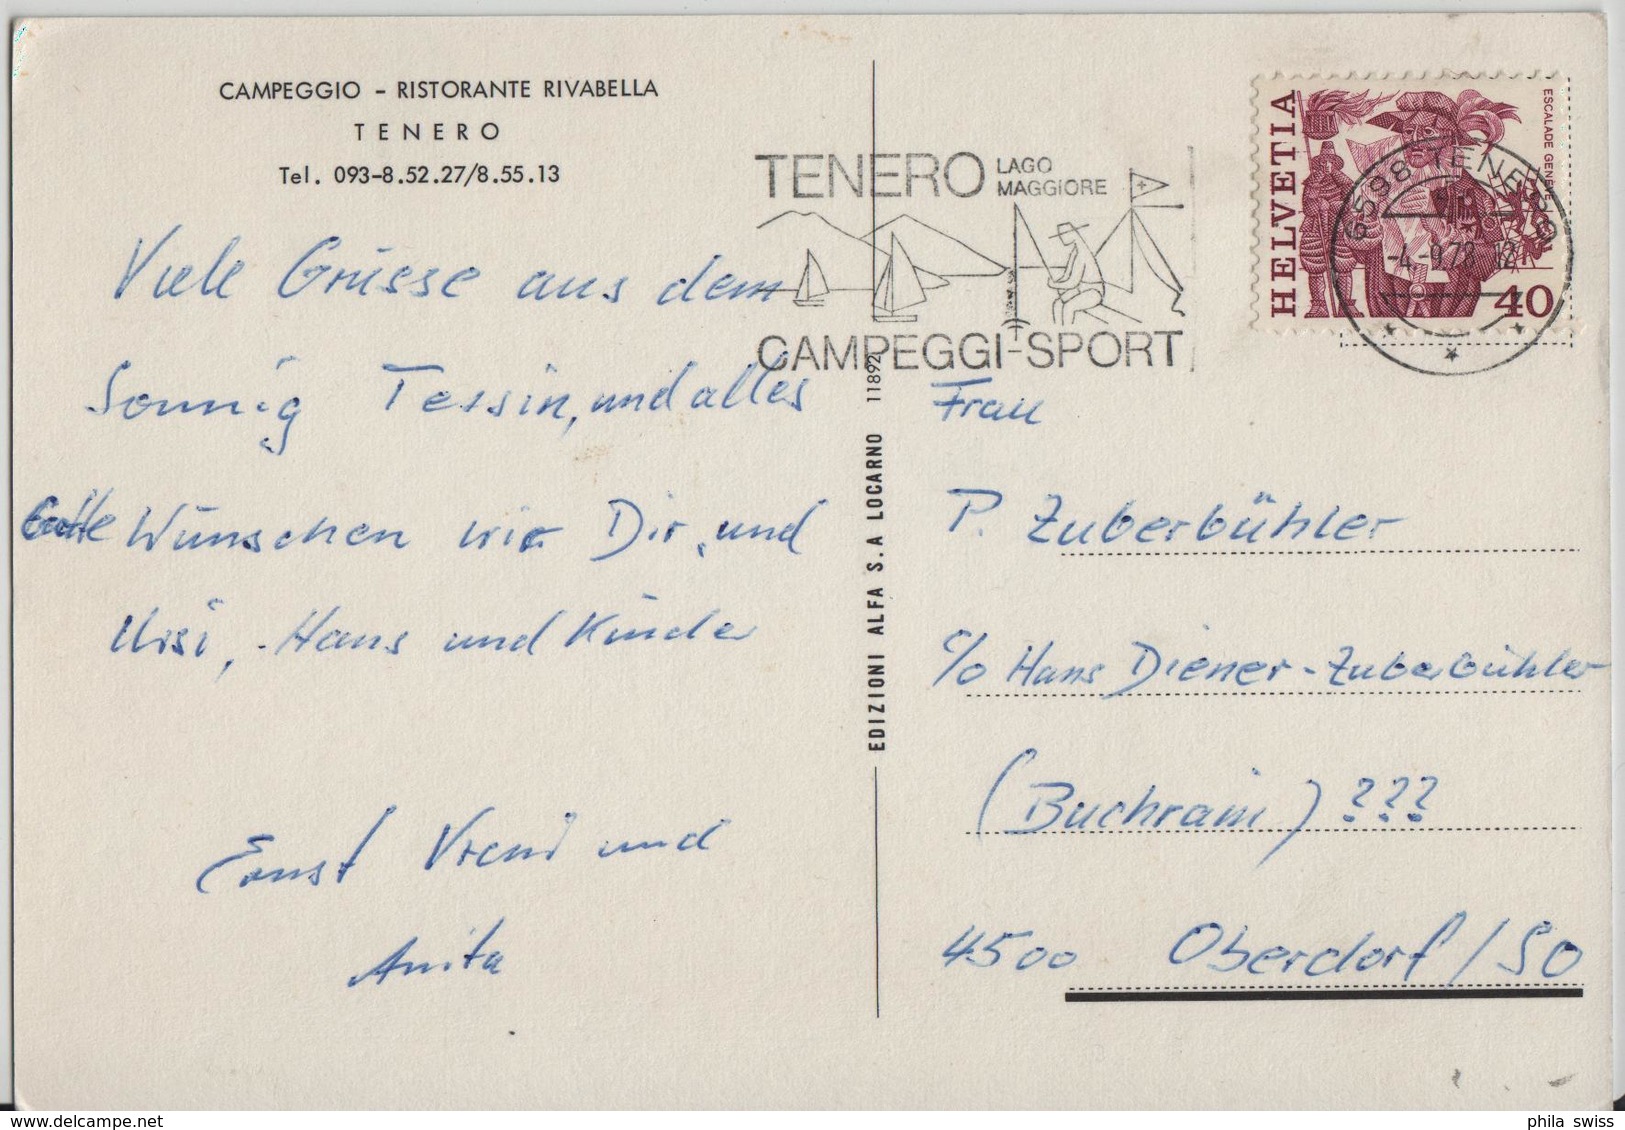 CAMPEGGIO - RISTORANTE RIVABELLA
TENERO
Tel. 093-8.52.27/8.55.13
Viele Grüsse aus dem
Sonnig Tessin, und alles
Gutte Wünschen wir Dir, und
Ursi, Hans und Kinder
Ernst Vreni und
Anita
EDIZIONI ALFA S.A LOCARNO 11892
TENERO LAGO MAGGIORE
CAMPEGGI-SPORT
HELVETIA
ESCALADE GENEVE
40
6598 TENERO
-4.-9.78 12
Frau
P. Zuberbühler
c/o Hans Diener-Zuberbühler
(Buchrain) ???
4500 Oberdorf/SO
phila_swiss